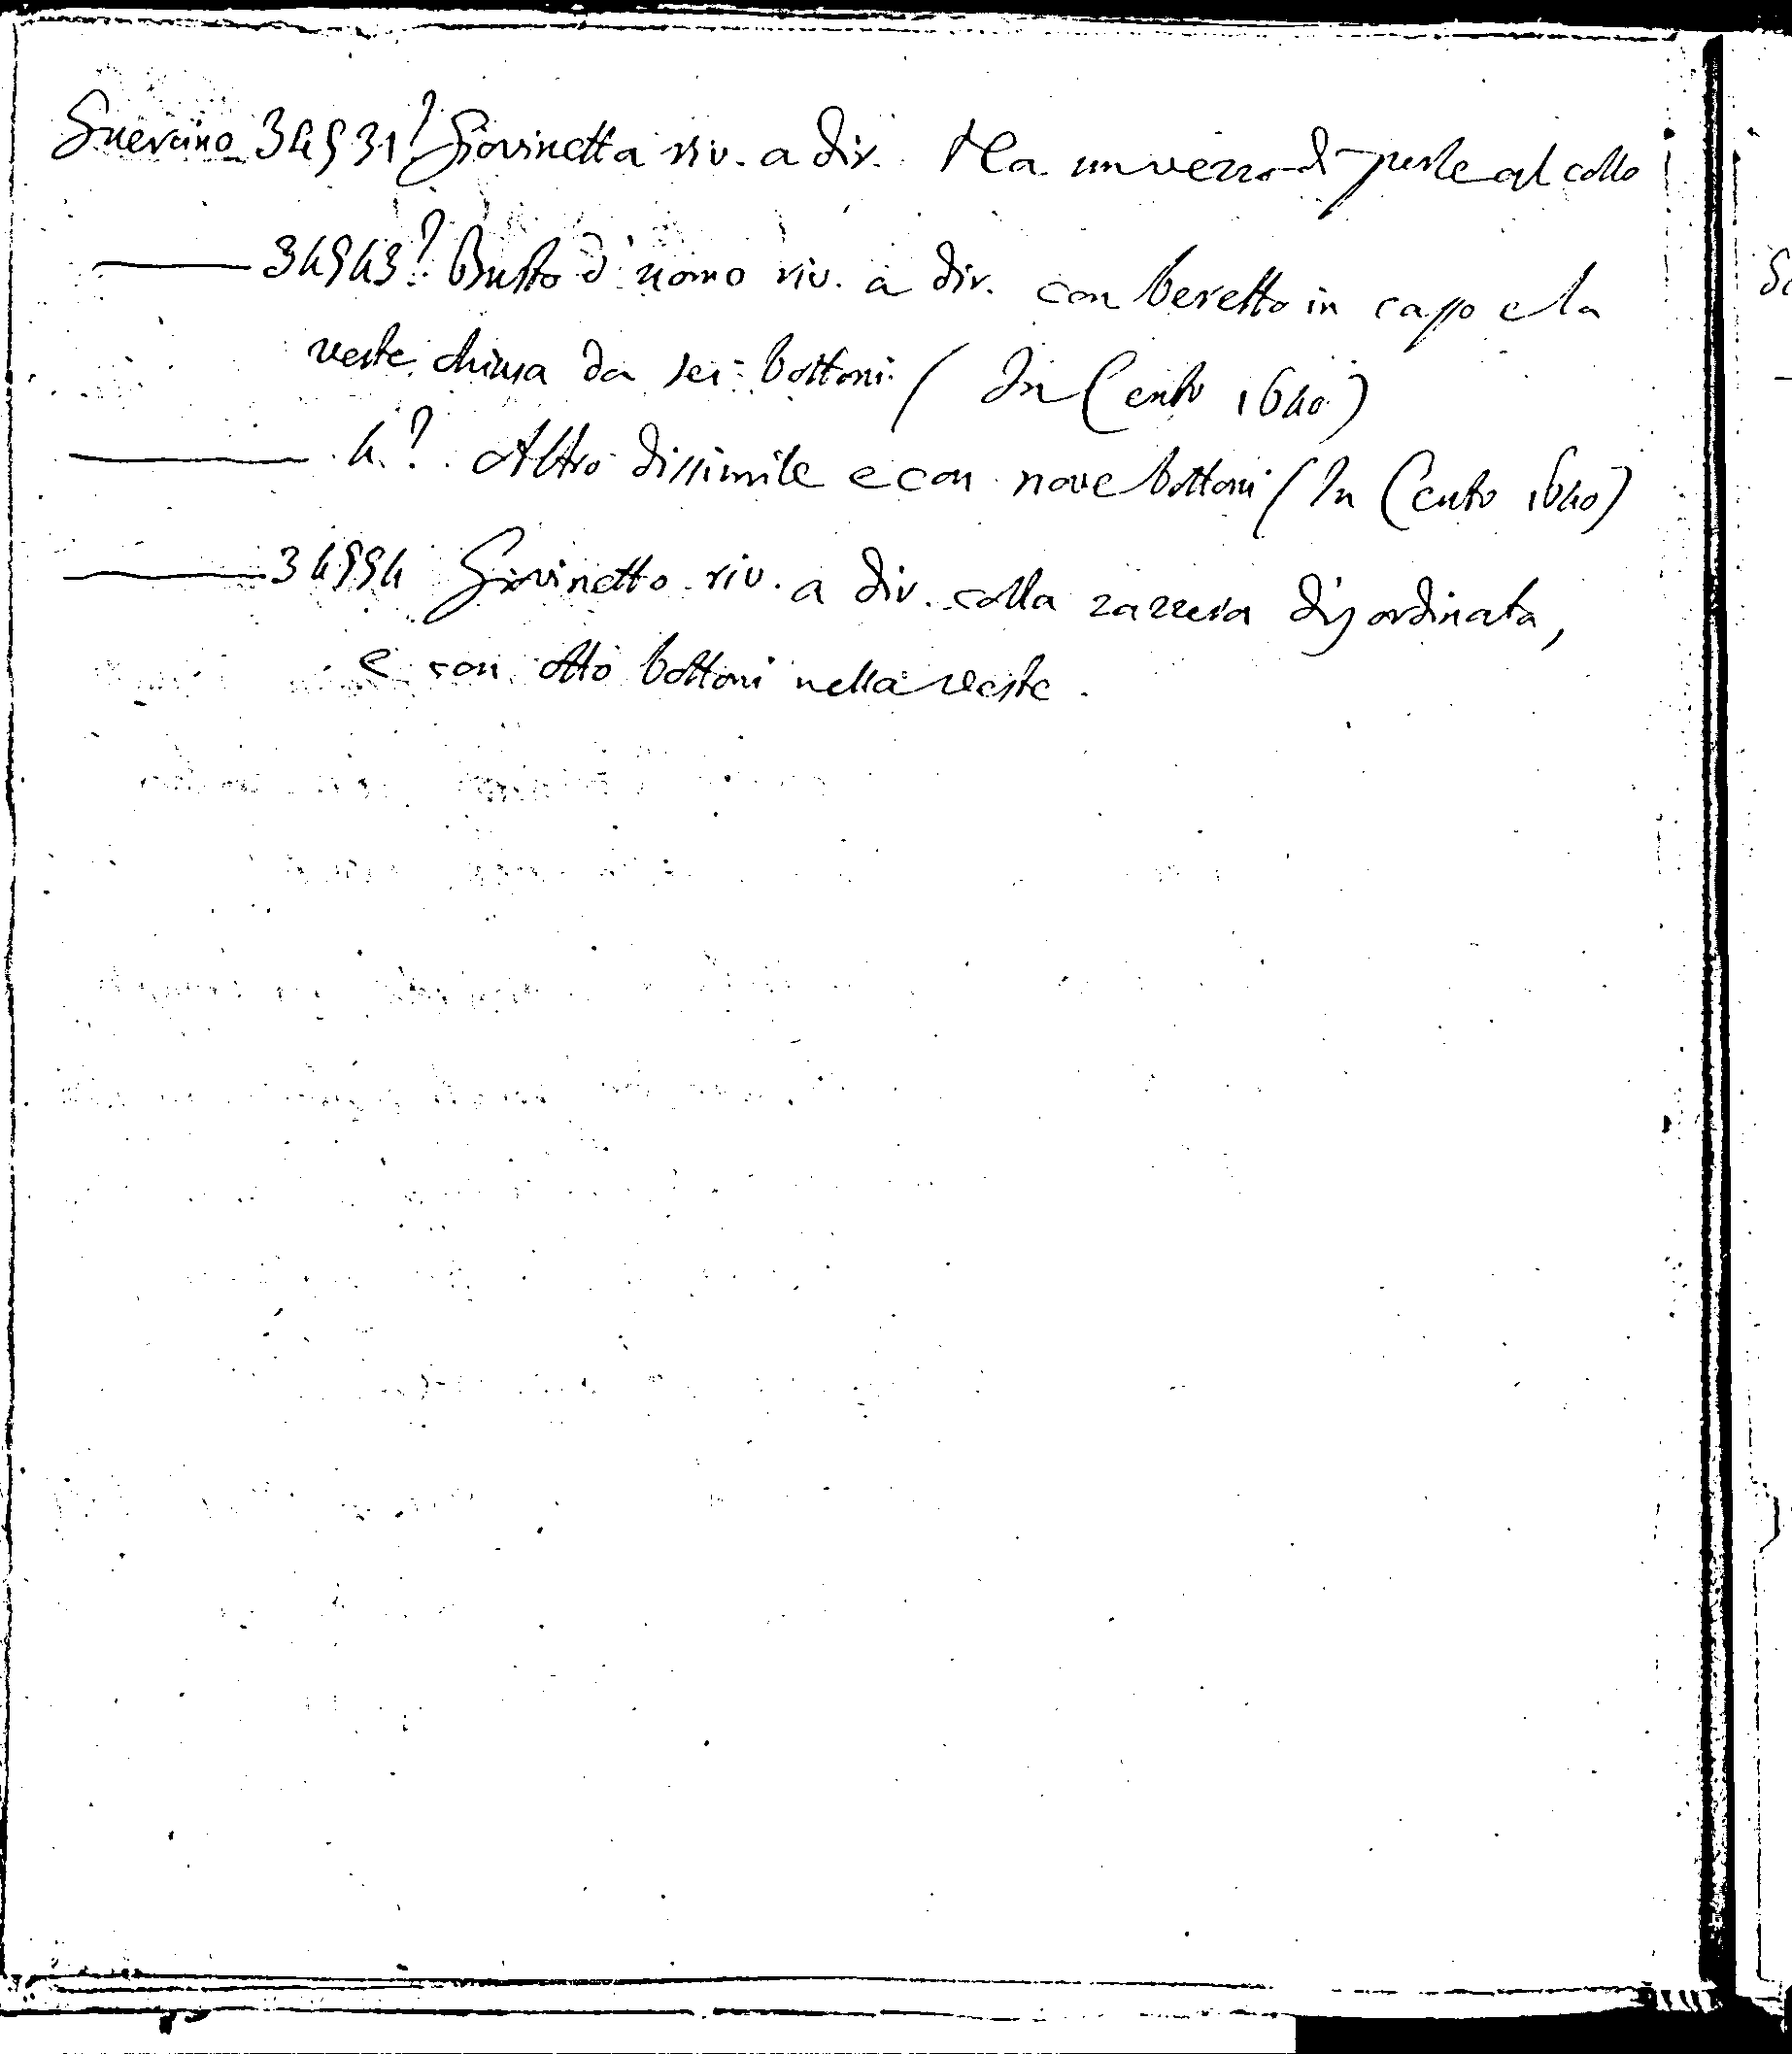 Guercino 34931? Giovinetta riv. a div. Ha un vezzo di perle al collo
——— 34943? Busto d'uomo riv. a div. con beretto in capo e la
veste chiusa da sei bottoni (In Cento 1640)
——— 4? Altro dissimile e con nove bottoni (In Cento 1640)
——— 34994 Giovinetto riv. a div. colla zazzera disordinata,
e con otto bottoni nella veste.